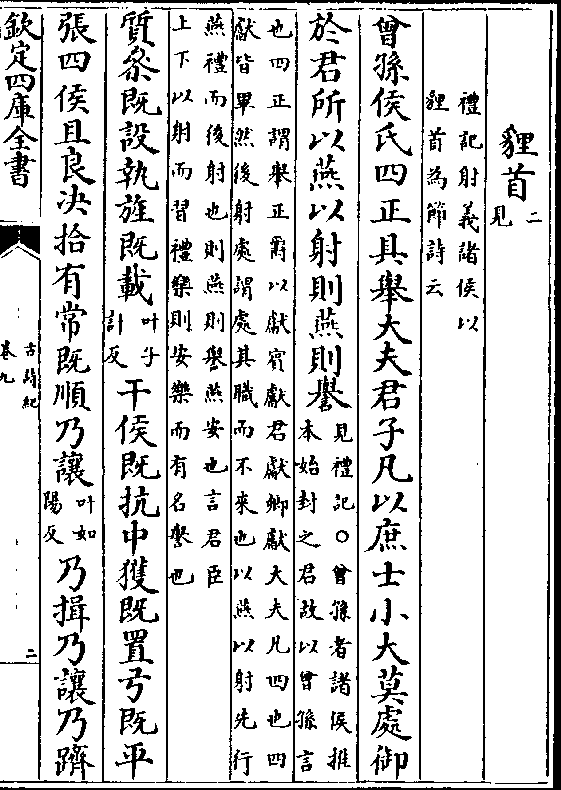 貍首二見
禮記射義諸侯以
貍首為節詩云
曾孫侯氏四正具舉大夫君子凡以庶士小大莫處御
於君所以燕以射則燕則譽
見禮記○曾孫者諸侯推
本始封之君故以曾孫言
也四正謂舉正爵以獻賓獻君獻卿獻大夫凡四也四
獻皆畢然後射處謂處其職而不來也以燕以射先行
燕禮而後射也則燕則譽燕安也言君臣
上下以射而習禮樂則安樂而有名譽也
質參既設執旌既載叶子計反干侯既抗中獲既置弓既平
張四侯且良决拾有常既順乃讓叶如陽反乃揖乃讓乃躋
欽定四庫全書
古詩紀
卷九
二